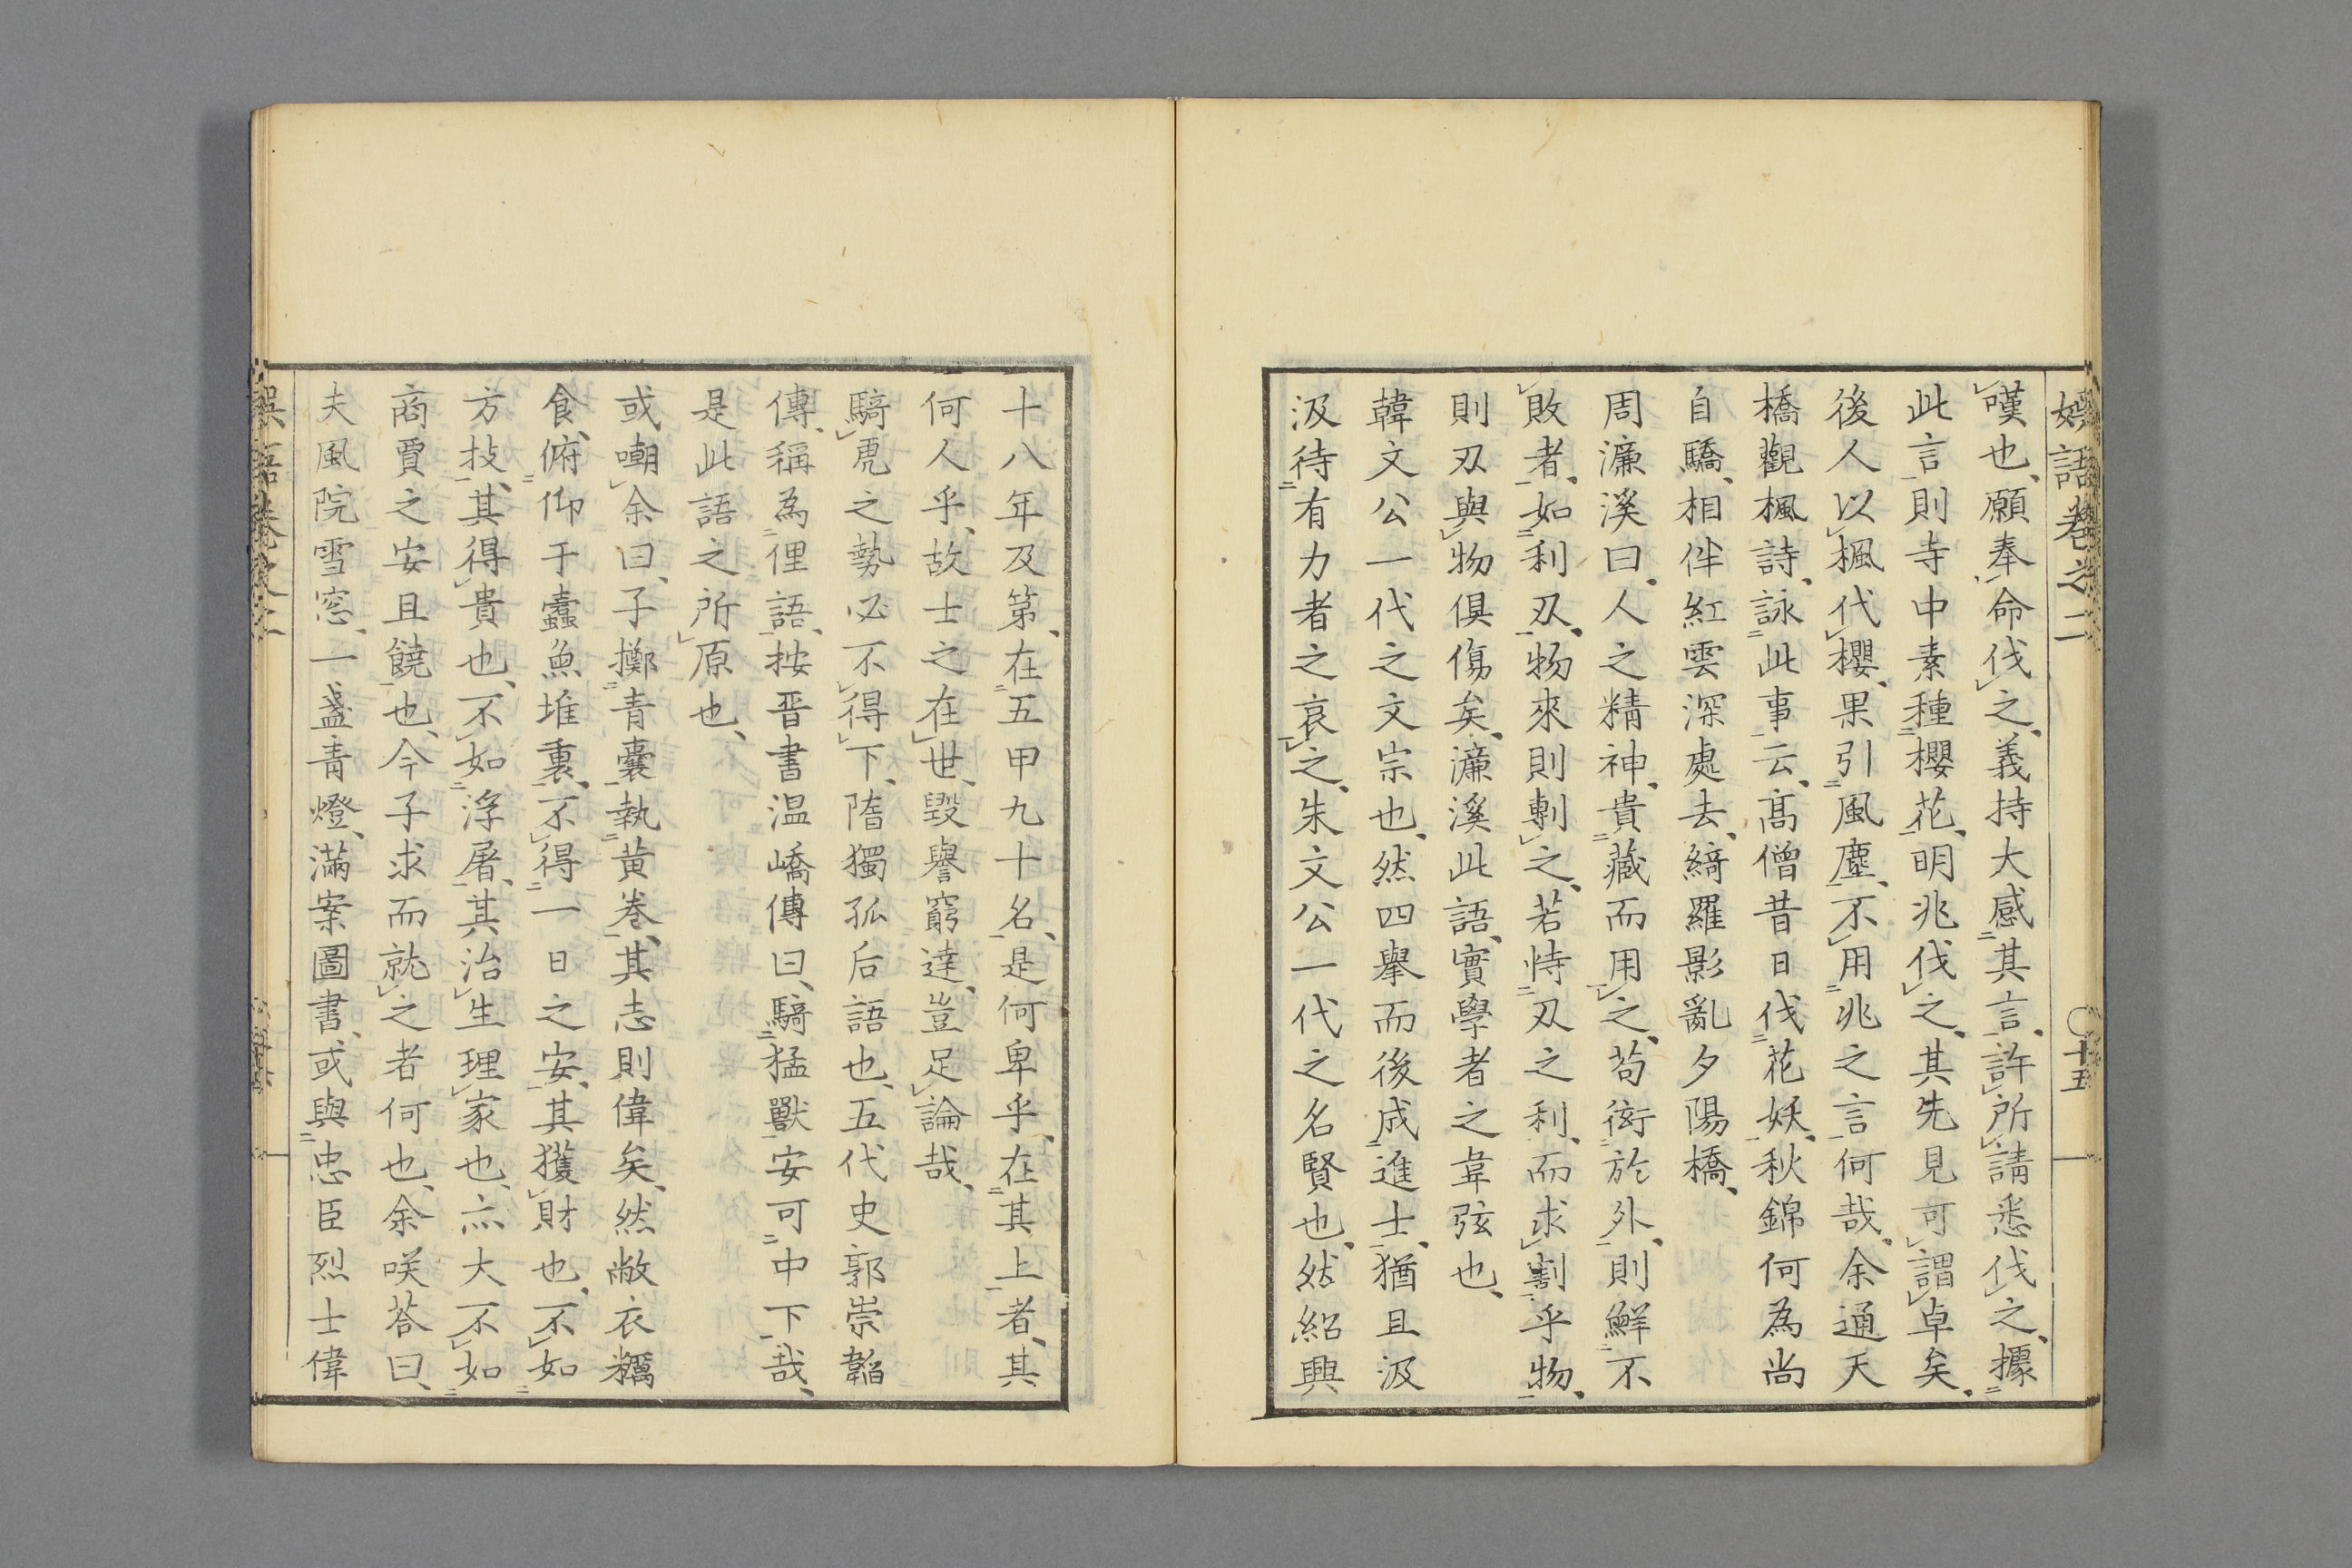 娯語卷之二 〇十五
嘆也、願奉命伐之、義持大感其言、許所請悉伐之、據
此言則寺中素種櫻花、明兆伐之、其先見可謂卓矣、
後人以楓代櫻、果引風塵、不用兆之言何哉、余通天
橋觀楓詩、詠此事云、髙僧昔日伐花妖、秋錦何為尚
自驕、相伴紅雲深處去、綺羅影亂夕陽橋、
周濂溪曰、人之精神、貴藏而用之、苟衒於外、則鮮不
敗者、如利刄、物來則剸之、若恃刄之利、而求割乎物、
則刄與物倶傷矣、濂溪此語、實學者之韋弦也、
韓文公一代之文宗也、然四擧而後成進士、猶且汲
汲待有力者之哀之、朱文公一代之名賢也、然紹興
十八年及第、在五甲九十名、是何卑乎、在其上者、其
何人乎、故士之在世、毀譽窮達、豈足論哉、
騎虎之勢必不得下、隋獨孤后語也、五代史郭崇韜
傳、稱為俚語、按晋書温嶠傳曰、騎猛獸安可中下哉、
是此語之所原也、
或嘲余曰、子擲青囊執黄卷、其志則偉矣、然敝衣糲
食、俯仰于蠹魚堆裏、不得一日之安、其獲財也、不如
方技、其得貴也、不如浮屠、其治生理家也、亦大不如
商賈之安且饒也、今子求而就之者何也、余咲荅曰、
夫風院雪窓、一盞青燈、滿案圖書、或與忠臣烈士偉